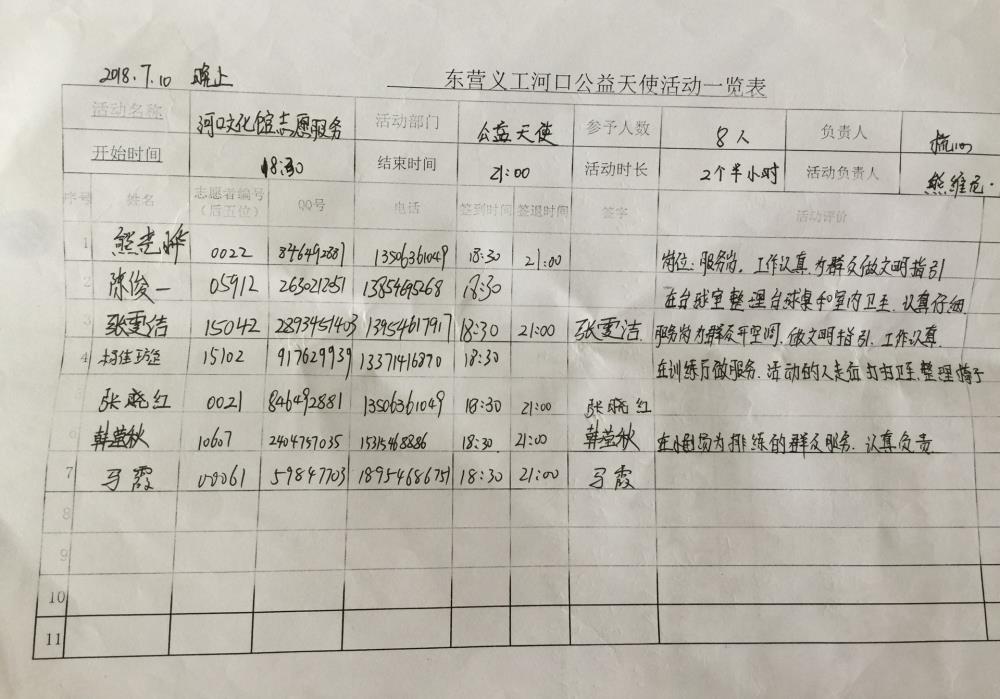 2018.7.10 晚上
东营义工河口公益天使活动一览表
活动名称 河口文化馆志愿服务 活动部门 公益天使 参予人数 8人 负责人
开始时间 18:30 结束时间 21:00 活动时长 2个半小时 活动负责人 熊维尼.
序号 姓名 志愿者编号（后五位） QQ号 电话 签到时间 签退时间 签字 活动评价
1 熊光晔 0022 846492881 13506361049 18:30 21:00 岗位:服务岗，工作认真.为群众做文明指引
2 陈俊一 05912 2630212351 13854695268 18:30 在台球室整理台球桌和室内卫生.认真仔细.
3 张雯洁 15042 2893451403 13954617917 18:30 21:00 张雯洁 服务岗为群众开空调.做文明指引.工作认真.
4 15102 917629939 13371416870 18:30 在训练厅做服务.活动的人走位打扫卫生.整理椅子
5 张晓红 0021 846492881 13506361049 18:30 21:00 张晓红
6 韩萤秋 10607 2404757035 15315468886 18:30 21:00 韩萤秋 为排练的群众服务.认真负责.
7 马霞 00061 59847703 18954686751 18:30 21:00 马霞
8
9
10
11